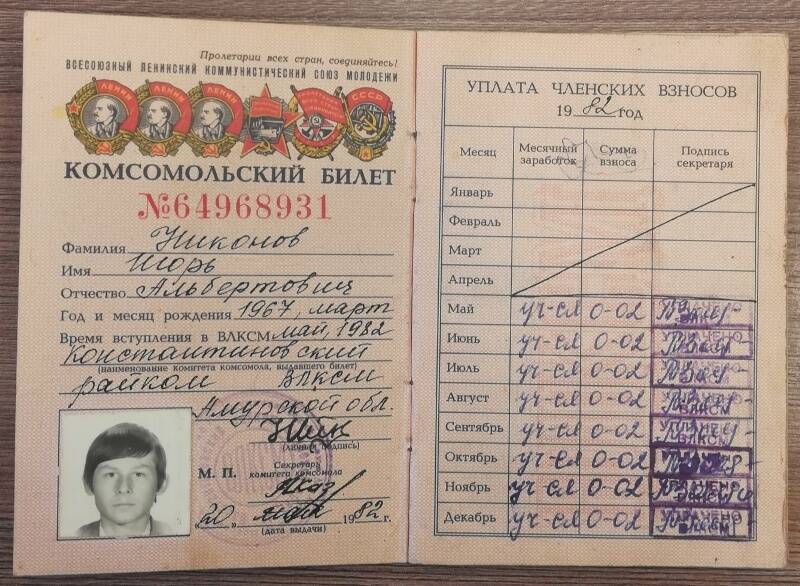 Пролетарии всех стран, соединяйтесь!
ВСЕСОЮЗНЫЙ ЛЕНИНСКИЙ КОММУНИСТИЧЕСКИЙ СОЮЗ МОЛОДЕЖИ
ЛЕНИН ЛЕНИН ЛЕНИН СССР
КОМСОМОЛЬСКИЙ БИЛЕТ
№64968931
Фамилия Никонов
Имя Игорь
Отчество Альбертович
Год и месяц рождения 1967, март
Время вступления в ВЛКСМ май, 1982
Константиновский
(наименование комитета комсомола, выдавшего билет)
райком ВЛКСМ
Амурской обл.
(личная подпись)
М. П. Секретарь
комитета комсомола
„20„ мая 1982 г.
(дата выдачи)
УПЛАТА ЧЛЕНСКИХ ВЗНОСОВ
1982 год
Месяц Месячный заработок Сумма взноса Подпись секретаря
Январь
Февраль
Март
Апрель
Май уч-ся 0-02 УПЛАЧЕНО ВЛКСМ
Июнь уч-ся 0-02
Июль уч-ся 0-02
Август уч-ся 0-02 ВЛКСМ
Сентябрь уч-ся 0-02 ВЛКСМ
Октябрь уч-ся 0-02
Ноябрь уч-ся 0-02 ВЛКСМ
Декабрь уч-ся 0-02 УПЛАЧЕНО ВЛКСМ